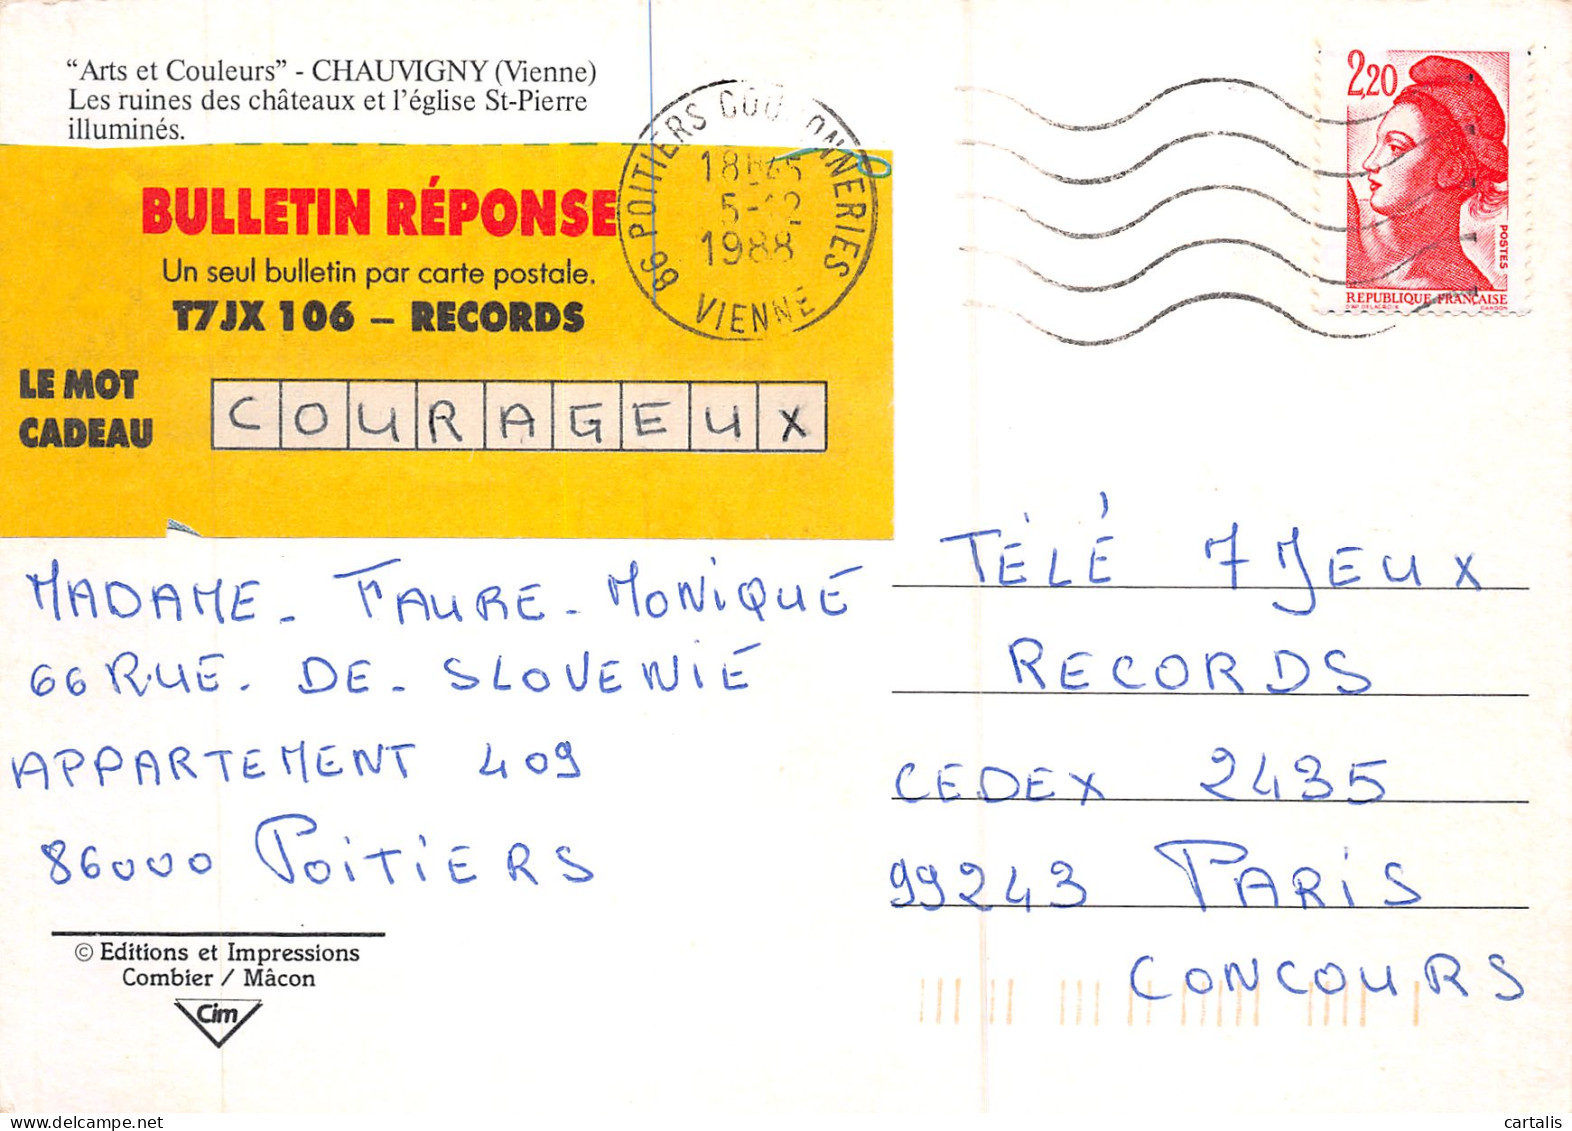 "Arts et Couleurs" - CHAUVIGNY (Vienne)
Les ruines des châteaux et l'église St-Pierre
illuminés.
BULLETIN RÉPONSE
Un seul bulletin par carte postale.
T7JX 106 – RECORDS
LE MOT
CADEAU
COURAGEUX
86 POITIERS COURONNERIES
18H45
5-12
1988
VIENNE
2,20
POSTES
REPUBLIQUE FRANÇAISE
GANDON
MADAME - FAURE - MONIQUE
66 RUE - DE - SLOVENIE
APPARTEMENT 409
86000 POITIERS
TÉLÉ 7 JEUX
RECORDS
CEDEX 2435
99243 PARIS
CONCOURS
© Editions et Impressions
Combier / Mâcon
Cim
cartalis